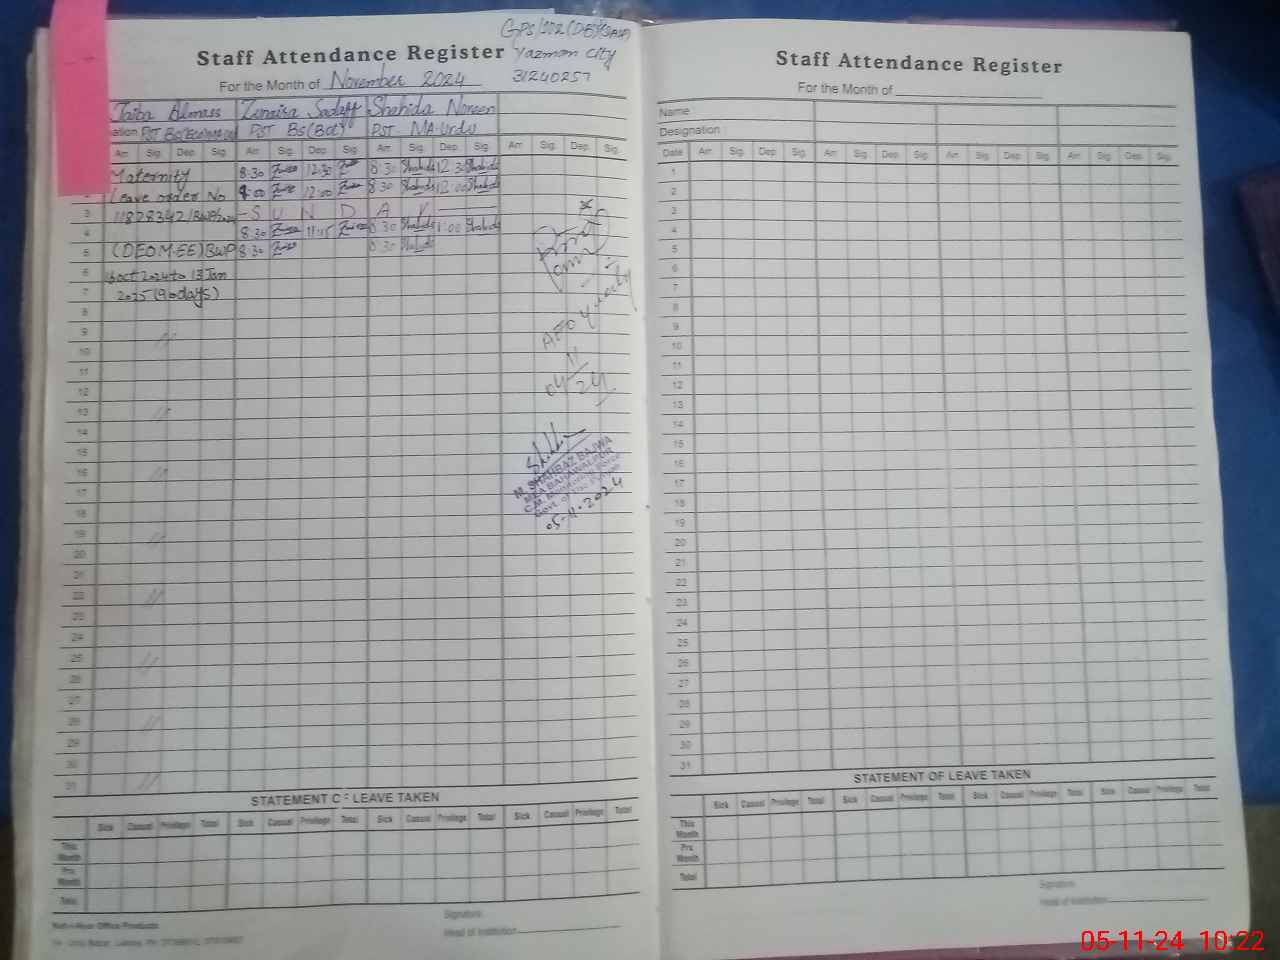 GPS/102 (DB)
Staff Attendance Register Yazman City
For the Month of November 2024 31240257
Taiba Almass Zunaira Sadaff Shahida Noreen
PST PST Bs(Bot) PST MA Urdu
Arr. Sig. Dep. Sig. Arr. Sig. Dep. Sig. Arr. Sig. Dep. Sig. Arr. Sig. Dep. Sig.
Maternity 8:30 12:30 8:30 Shahida 12:30 Shahida
Leave order No 12:00 8:30 Shahida 12:00 Shahida
3 S U N D A Y
4 8:30 11:15 8:30 Shahida 1:00 Shahida
5 (DEO M-EE) BWP 8:30 8:30 Shahida
6 oct 2024 to 13 Jan
7 2025 (90 days)
8
9
10
11
12
13
14
15
16
17
18
19
20
21
22
23
24
25
26
27
28
29
30
31
AEO
04/11/24
M. SHAHBAZ BAJWA
MEA BAHAWALPUR
05-11-2024
STATEMENT OF LEAVE TAKEN
Sick Casual Privilege Total Sick Casual Privilege Total Sick Casual Privilege Total Sick Casual Privilege Total
This Month
Prv. Month
Total
Signature
Head of Institution
Staff Attendance Register
For the Month of
Name
Designation
Date Arr. Sig. Dep. Sig. Arr. Sig. Dep. Sig. Arr. Sig. Dep. Sig. Arr. Sig. Dep. Sig.
1
2
3
4
5
6
7
8
9
10
11
12
13
14
15
16
17
18
19
20
21
22
23
24
25
26
27
28
29
30
31
STATEMENT OF LEAVE TAKEN
Sick Casual Privilege Total Sick Casual Privilege Total Sick Casual Privilege Total Sick Casual Privilege Total
This Month
Prv. Month
Total
Signature
Head of Institution
05-11-24 10:22